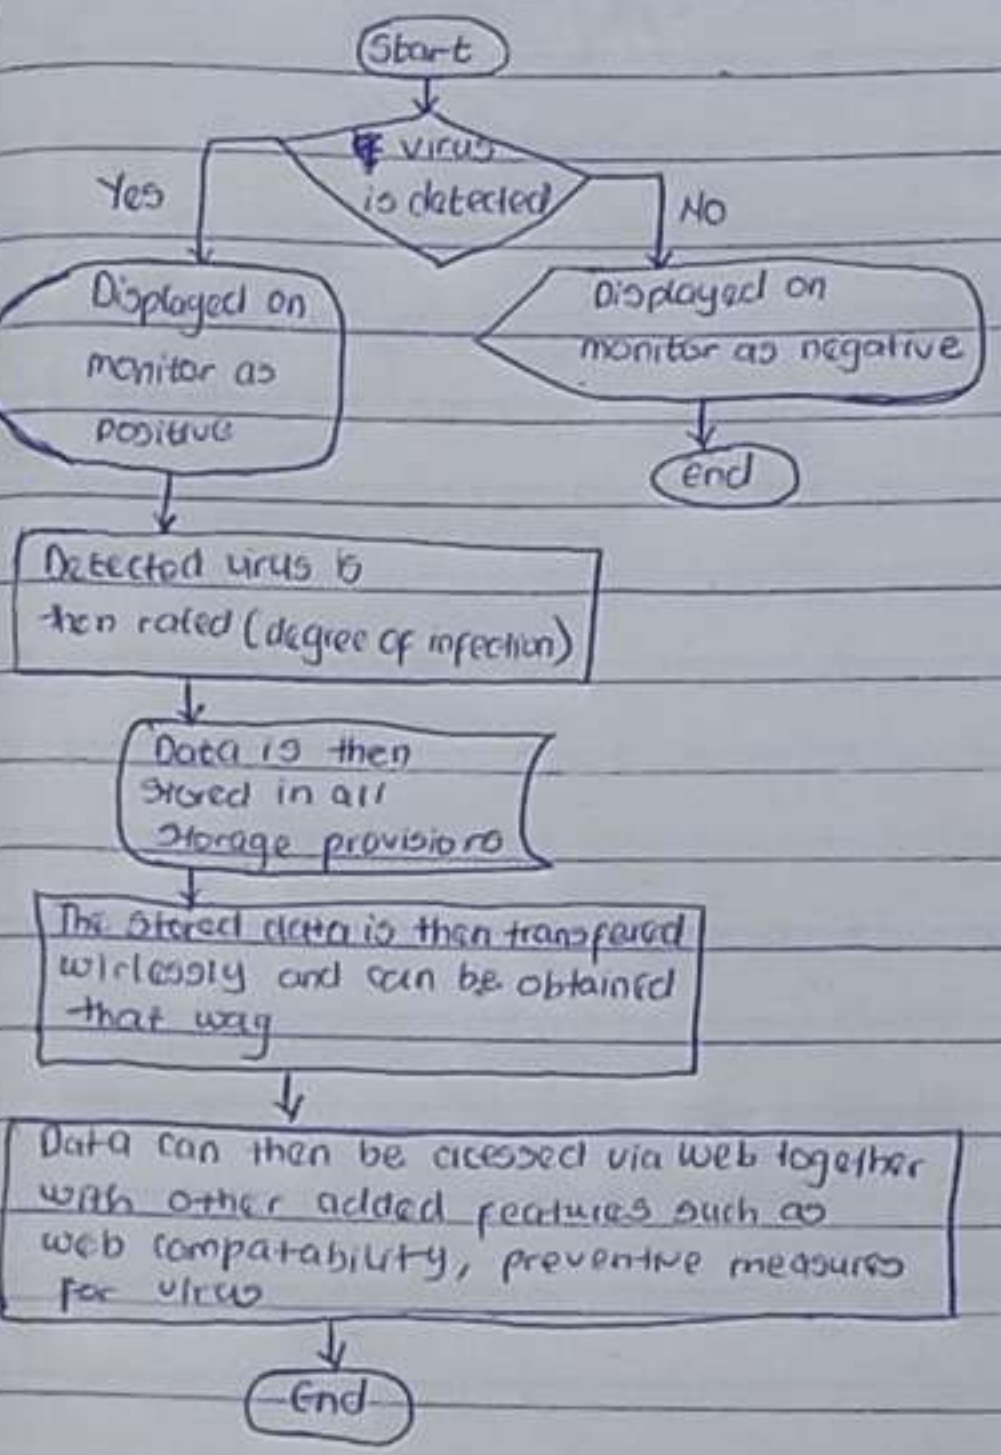 Start
virus
is detected
Yes
NO
Displayed on
monitor as
positive
Displayed on
monitor as negative
End
Detected virus is
then rated (degree of infection)
Data is then
stored in all
storage provisions
The stored data is then transfered
wirlessly and can be obtained
that way
Data can then be acessed via web together
with other added features such as
web compatability, preventive measures
for virus
End